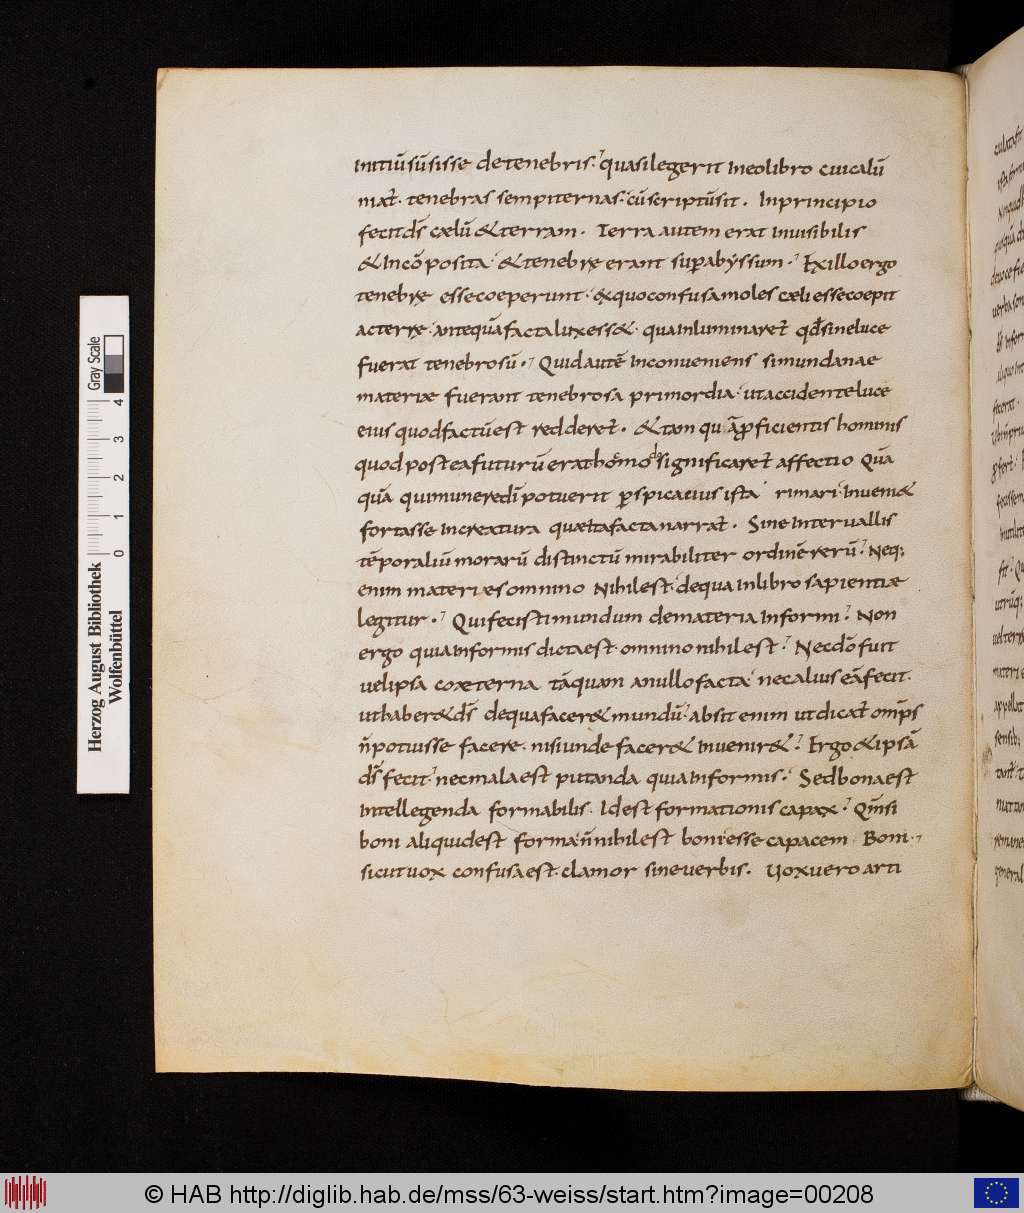 initiū sūsisse de tenebris. quasi legerit in eo libro cui calū
niat̄. tenebras sempiternas. cū scriptū sit. In principio
fecit ds̄ cælū & terram. Terra autem erat inuisibilis
& incōposita. & tenebrę erant sup abyssum. Ex illo ergo
tenebrę esse coeperunt. ex quo confusa moles cæli esse coepit
ac terrę. antequā facta lux ess&. qua inluminaret̄ qd̄ sine luce
fuerat tenebrosū. Quid autē inconueniens si mundanae
materiæ fuerant tenebrosa primordia. ut accidente luce
eius quod factū est redderet̄. & tam qu ā pficientis hominis
quod postea futurū erat homo significaret̄ affectio Quā
quā qui munere dī potuerit pspicacius ista rimari. inueni&
fortasse increatura quæ ita facta narrat̄. Sine interuallis
tēporaliū morarū distinctū mirabiliter ordinē rerū. Neq;
enim materiæs omnino nihil est. de qua in libro sapientiæ
legitur. Qui fecisti mundum de materia informi. Non
ergo quia informis dicta est. omnino nihil est. Nec dō fuit
uel ipsa coæterna tāquam a nullo facta. nec alius eā fecit.
ut haber& ds̄ de qua facer& mundū. absit enim ut dicat̄ omps̄
n̄ potuisse facere. nisi unde facer& inuenir&. Ergo & ipsā
ds̄ fecit. nec mala est putanda quia informis. Sed bona est
intellegenda formabilis. Id est formationis capax. Qm̄ si
boni aliquid est forma. n̄ nihil est boni esse capacem Boni.
sicut uox confusa est. clamor sine uerbis. Uox uero arti
Gray Scale
0 1 2 3 4
Herzog August Bibliothek
Wolfenbüttel
© HAB http://diglib.hab.de/mss/63-weiss/start.htm?image=00208